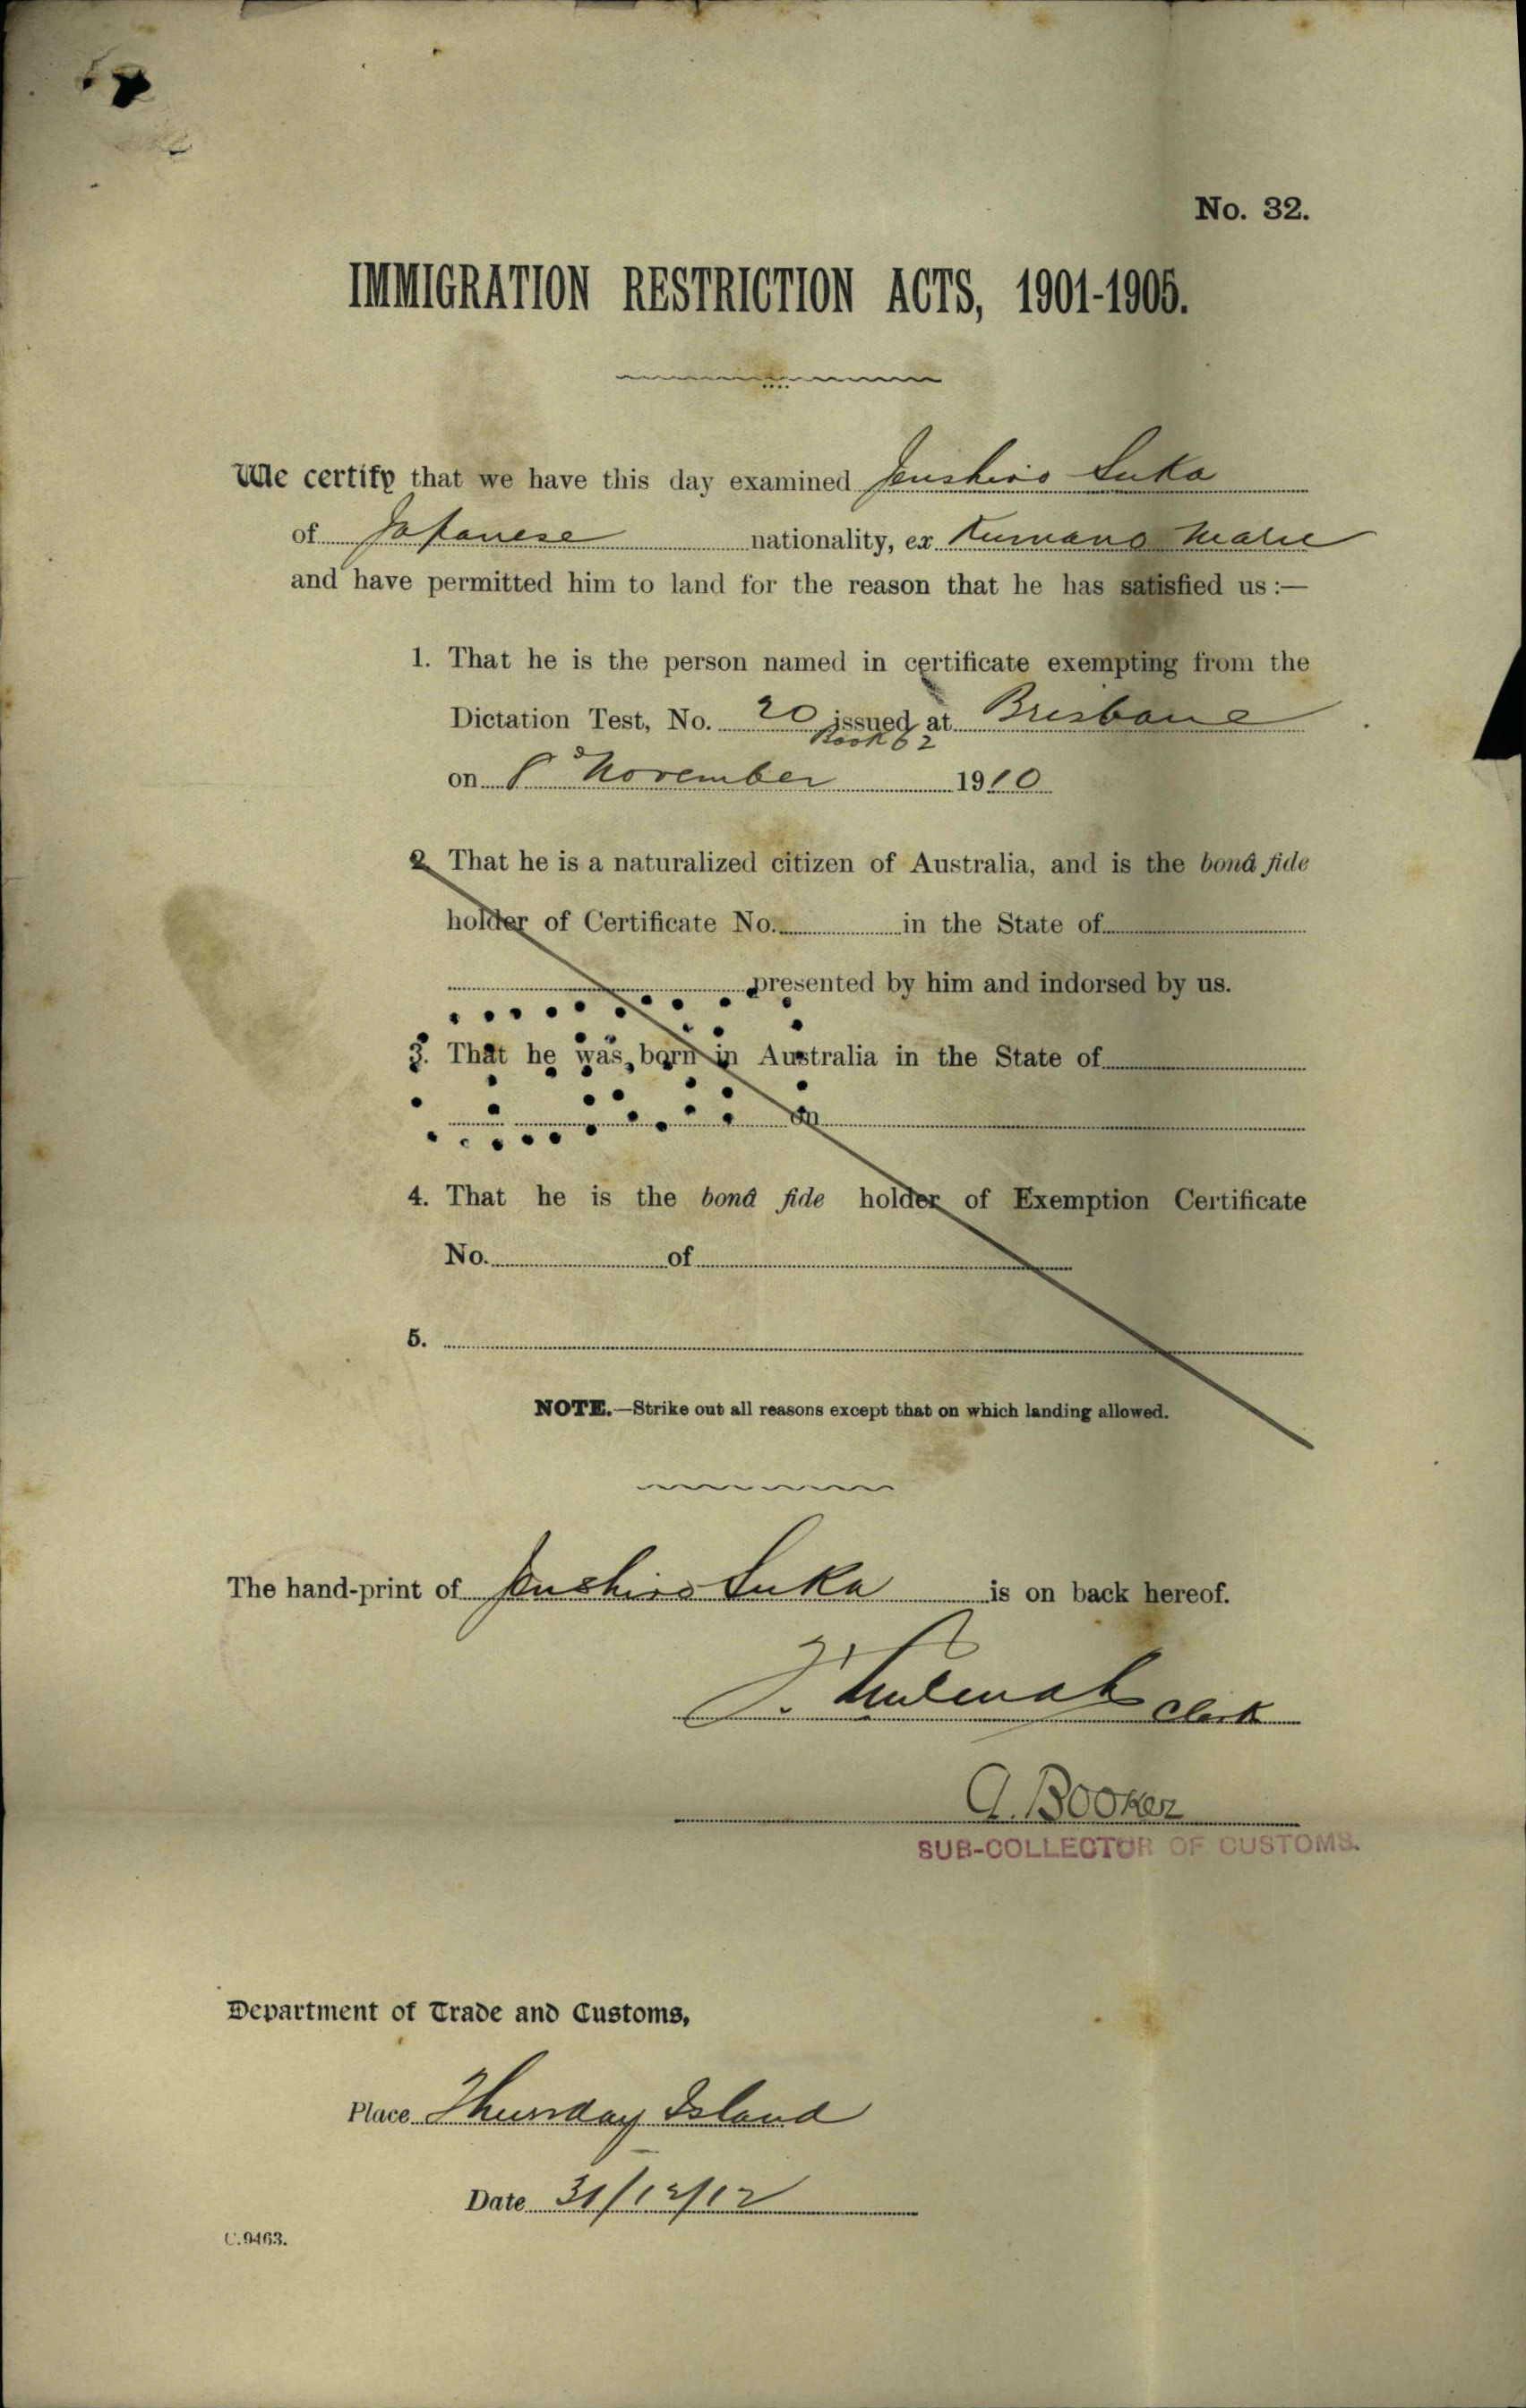 No. 32.
IMMIGRATION RESTRICTION ACTS, 1901-1905.
We certify that we have this day examined Jenshiro Suka
of Japanese nationality, ex Kumano Maru
and have permitted him to land for the reason that he has satisfied us :—
1. That he is the person named in certificate exempting from the
Dictation Test, No. 20 issued at Brisbane
Book 62
on 8 November 1910
2. That he is a naturalized citizen of Australia, and is the bonâ fide
holder of Certificate No. in the State of
presented by him and indorsed by us.
3. That he was born in Australia in the State of
on
4. That he is the bonâ fide holder of Exemption Certificate
No. of
5.
NOTE.—Strike out all reasons except that on which landing allowed.
The hand-print of Jenshiro Suka is on back hereof.
Clerk
G. Booker
SUB-COLLECTOR OF CUSTOMS.
Department of Trade and Customs,
Place Thursday Island
Date 31/12/12
C.9463.